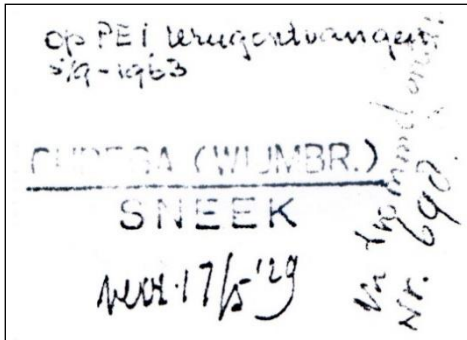 op PEI terugontvangen
5/9-1963
OUDEGA (WIJMBR.)
SNEEK
verz. 17/5 '29
Nr. 690